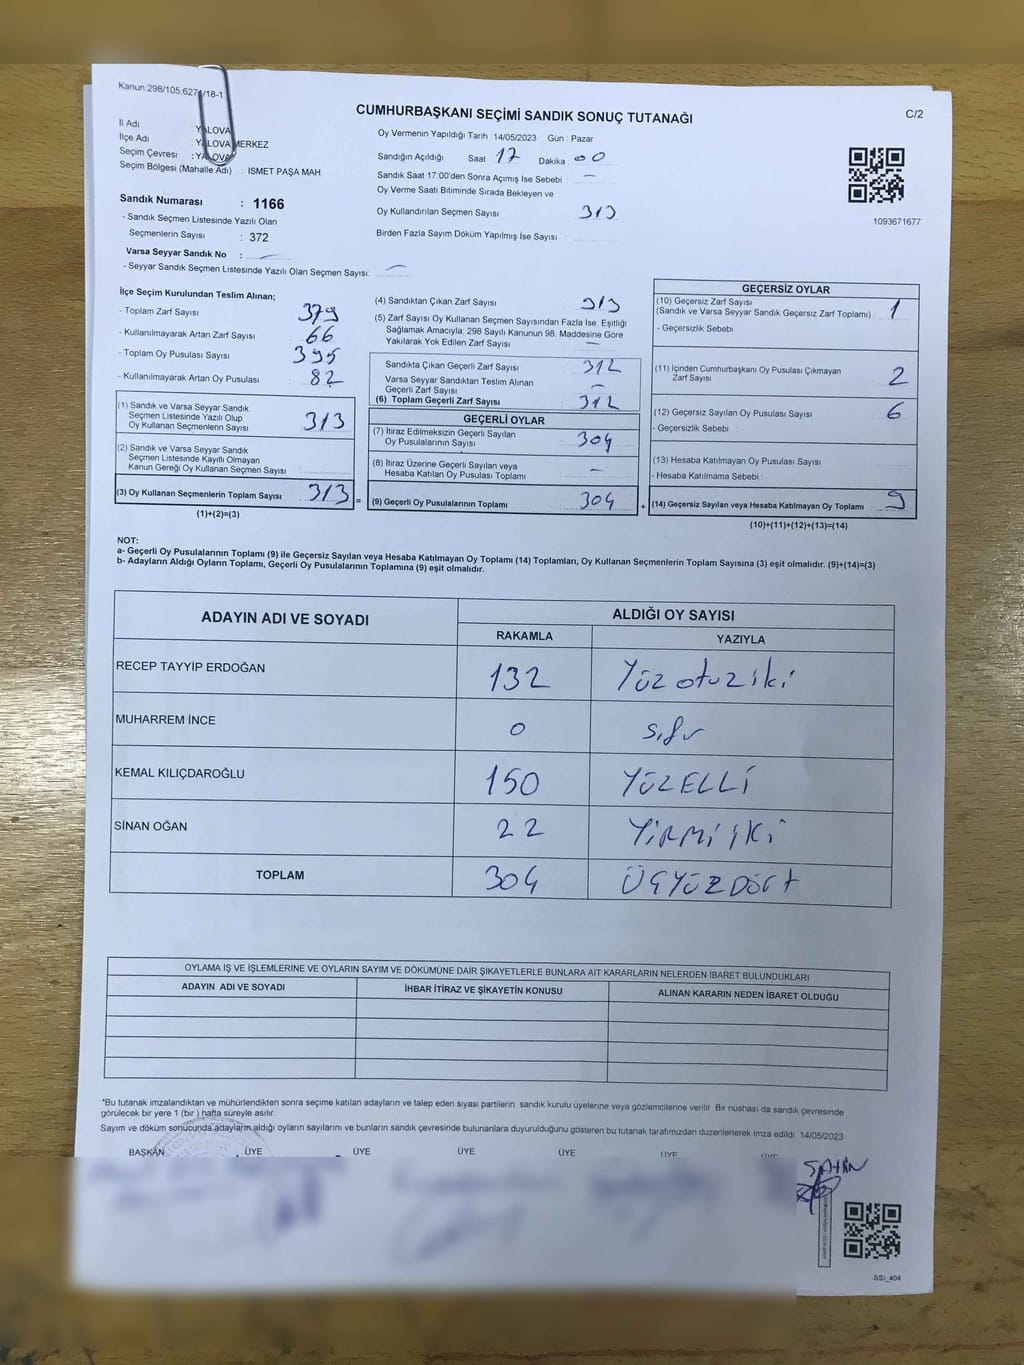 Kanun:298/105,627/18-1
CUMHURBAŞKANI SEÇİMİ SANDIK SONUÇ TUTANAĞI
C/2
İl Adı : YALOVA
İlçe Adı : YALOVA MERKEZ
Seçim Çevresi : YALOVA
Seçim Bölgesi (Mahalle Adı) : İSMET PAŞA MAH.
Oy Vermenin Yapıldığı Tarih : 14/05/2023 Gün : Pazar
Sandığın Açıldığı Saat 17 Dakika : 00
Sandık Saat 17:00'den Sonra Açımış İse Sebebi : —
Oy Verme Saati Bitiminde Sırada Bekleyen ve
Oy Kullandırılan Seçmen Sayısı 313
Birden Fazla Sayım Döküm Yapılmış İse Sayısı :
1093671677
Sandık Numarası : 1166
- Sandık Seçmen Listesinde Yazılı Olan
Seçmenlerin Sayısı : 372
Varsa Seyyar Sandık No : —
- Seyyar Sandık Seçmen Listesinde Yazılı Olan Seçmen Sayısı: —
İlçe Seçim Kurulundan Teslim Alınan;
- Toplam Zarf Sayısı : 379
- Kullanılmayarak Artan Zarf Sayısı : 66
- Toplam Oy Pusulası Sayısı : 395
- Kullanılmayarak Artan Oy Pusulası : 82
(1) Sandık ve Varsa Seyyar Sandık
Seçmen Listesinde Yazılı Olup
Oy Kullanan Seçmenlerin Sayısı : 313
(2) Sandık ve Varsa Seyyar Sandık
Seçmen Listesinde Kayıtlı Olmayan
Kanun Gereği Oy Kullanan Seçmen Sayısı :
(3) Oy Kullanan Seçmenlerin Toplam Sayısı : 313 =
(1)+(2)=(3)
(4) Sandıktan Çıkan Zarf Sayısı : 313
(5) Zarf Sayısı Oy Kullanan Seçmen Sayısından Fazla İse, Eşitliği
Sağlamak Amacıyla, 298 Sayılı Kanunun 98. Maddesine Göre
Yakılarak Yok Edilen Zarf Sayısı : —
Sandıkta Çıkan Geçerli Zarf Sayısı : 312
Varsa Seyyar Sandıktan Teslim Alınan
Geçerli Zarf Sayısı : —
(6) Toplam Geçerli Zarf Sayısı : 312
GEÇERLİ OYLAR
(7) İtiraz Edilmeksizin Geçerli Sayılan
Oy Pusulalarının Sayısı : 304
(8) İtiraz Üzerine Geçerli Sayılan veya
Hesaba Katılan Oy Pusulası Toplamı : —
(9) Geçerli Oy Pusulalarının Toplamı : 304 +
GEÇERSİZ OYLAR
(10) Geçersiz Zarf Sayısı
(Sandık ve Varsa Seyyar Sandık Geçersiz Zarf Toplamı) : 1
- Geçersizlik Sebebi
(11) İçinden Cumhurbaşkanı Oy Pusulası Çıkmayan
Zarf Sayısı : 2
(12) Geçersiz Sayılan Oy Pusulası Sayısı : 6
- Geçersizlik Sebebi :
(13) Hesaba Katılmayan Oy Pusulası Sayısı :
- Hesaba Katılmama Sebebi :
(14) Geçersiz Sayılan veya Hesaba Katılmayan Oy Toplamı : 9
(10)+(11)+(12)+(13)=(14)
NOT:
a- Geçerli Oy Pusulalarının Toplamı (9) ile Geçersiz Sayılan veya Hesaba Katılmayan Oy Toplamı (14) Toplamları, Oy Kullanan Seçmenlerin Toplam Sayısına (3) eşit olmalıdır. (9)+(14)=(3)
b- Adayların Aldığı Oyların Toplamı, Geçerli Oy Pusulalarının Toplamına (9) eşit olmalıdır.
ADAYIN ADI VE SOYADI ALDIĞI OY SAYISI
RAKAMLA YAZIYLA
RECEP TAYYİP ERDOĞAN 132 Yüz otuz iki
MUHARREM İNCE 0 sıfır
KEMAL KILIÇDAROĞLU 150 YÜZELLİ
SİNAN OĞAN 22 YİRMİ İKİ
TOPLAM 304 ÜÇYÜZDÖRT
OYLAMA İŞ VE İŞLEMLERİNE VE OYLARIN SAYIM VE DÖKÜMÜNE DAİR ŞİKAYETLERLE BUNLARA AİT KARARLARIN NELERDEN İBARET BULUNDUKLARI
ADAYIN ADI VE SOYADI İHBAR İTİRAZ VE ŞİKAYETİN KONUSU ALINAN KARARIN NEDEN İBARET OLDUĞU
*Bu tutanak imzalandıktan ve mühürlendikten sonra seçime katılan adayların ve talep eden siyasi partilerin sandık kurulu üyelerine veya gözlemcilerine verilir. Bir nüshası da sandık çevresinde
görülecek bir yere 1 (bir ) hafta süreyle asılır.
Sayım ve döküm sonucunda adayların aldığı oyların sayılarını ve bunların sandık çevresinde bulunanlara duyurulduğunu gösteren bu tutanak tarafımızdan düzenlenerek imza edildi 14/05/2023
BAŞKAN ÜYE ÜYE ÜYE ÜYE ÜYE ÜYE
SSI_404